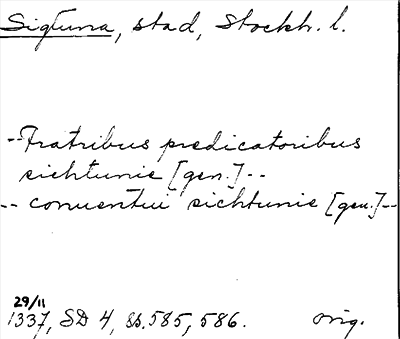 Sigtuna, stad, Stockh. l.
--Fratribus predicatoribus
sichtunie [gen.]--
-- conuentui sichtunie [gen.]--
29/11
1337, SD 4, ss. 585, 586. orig.